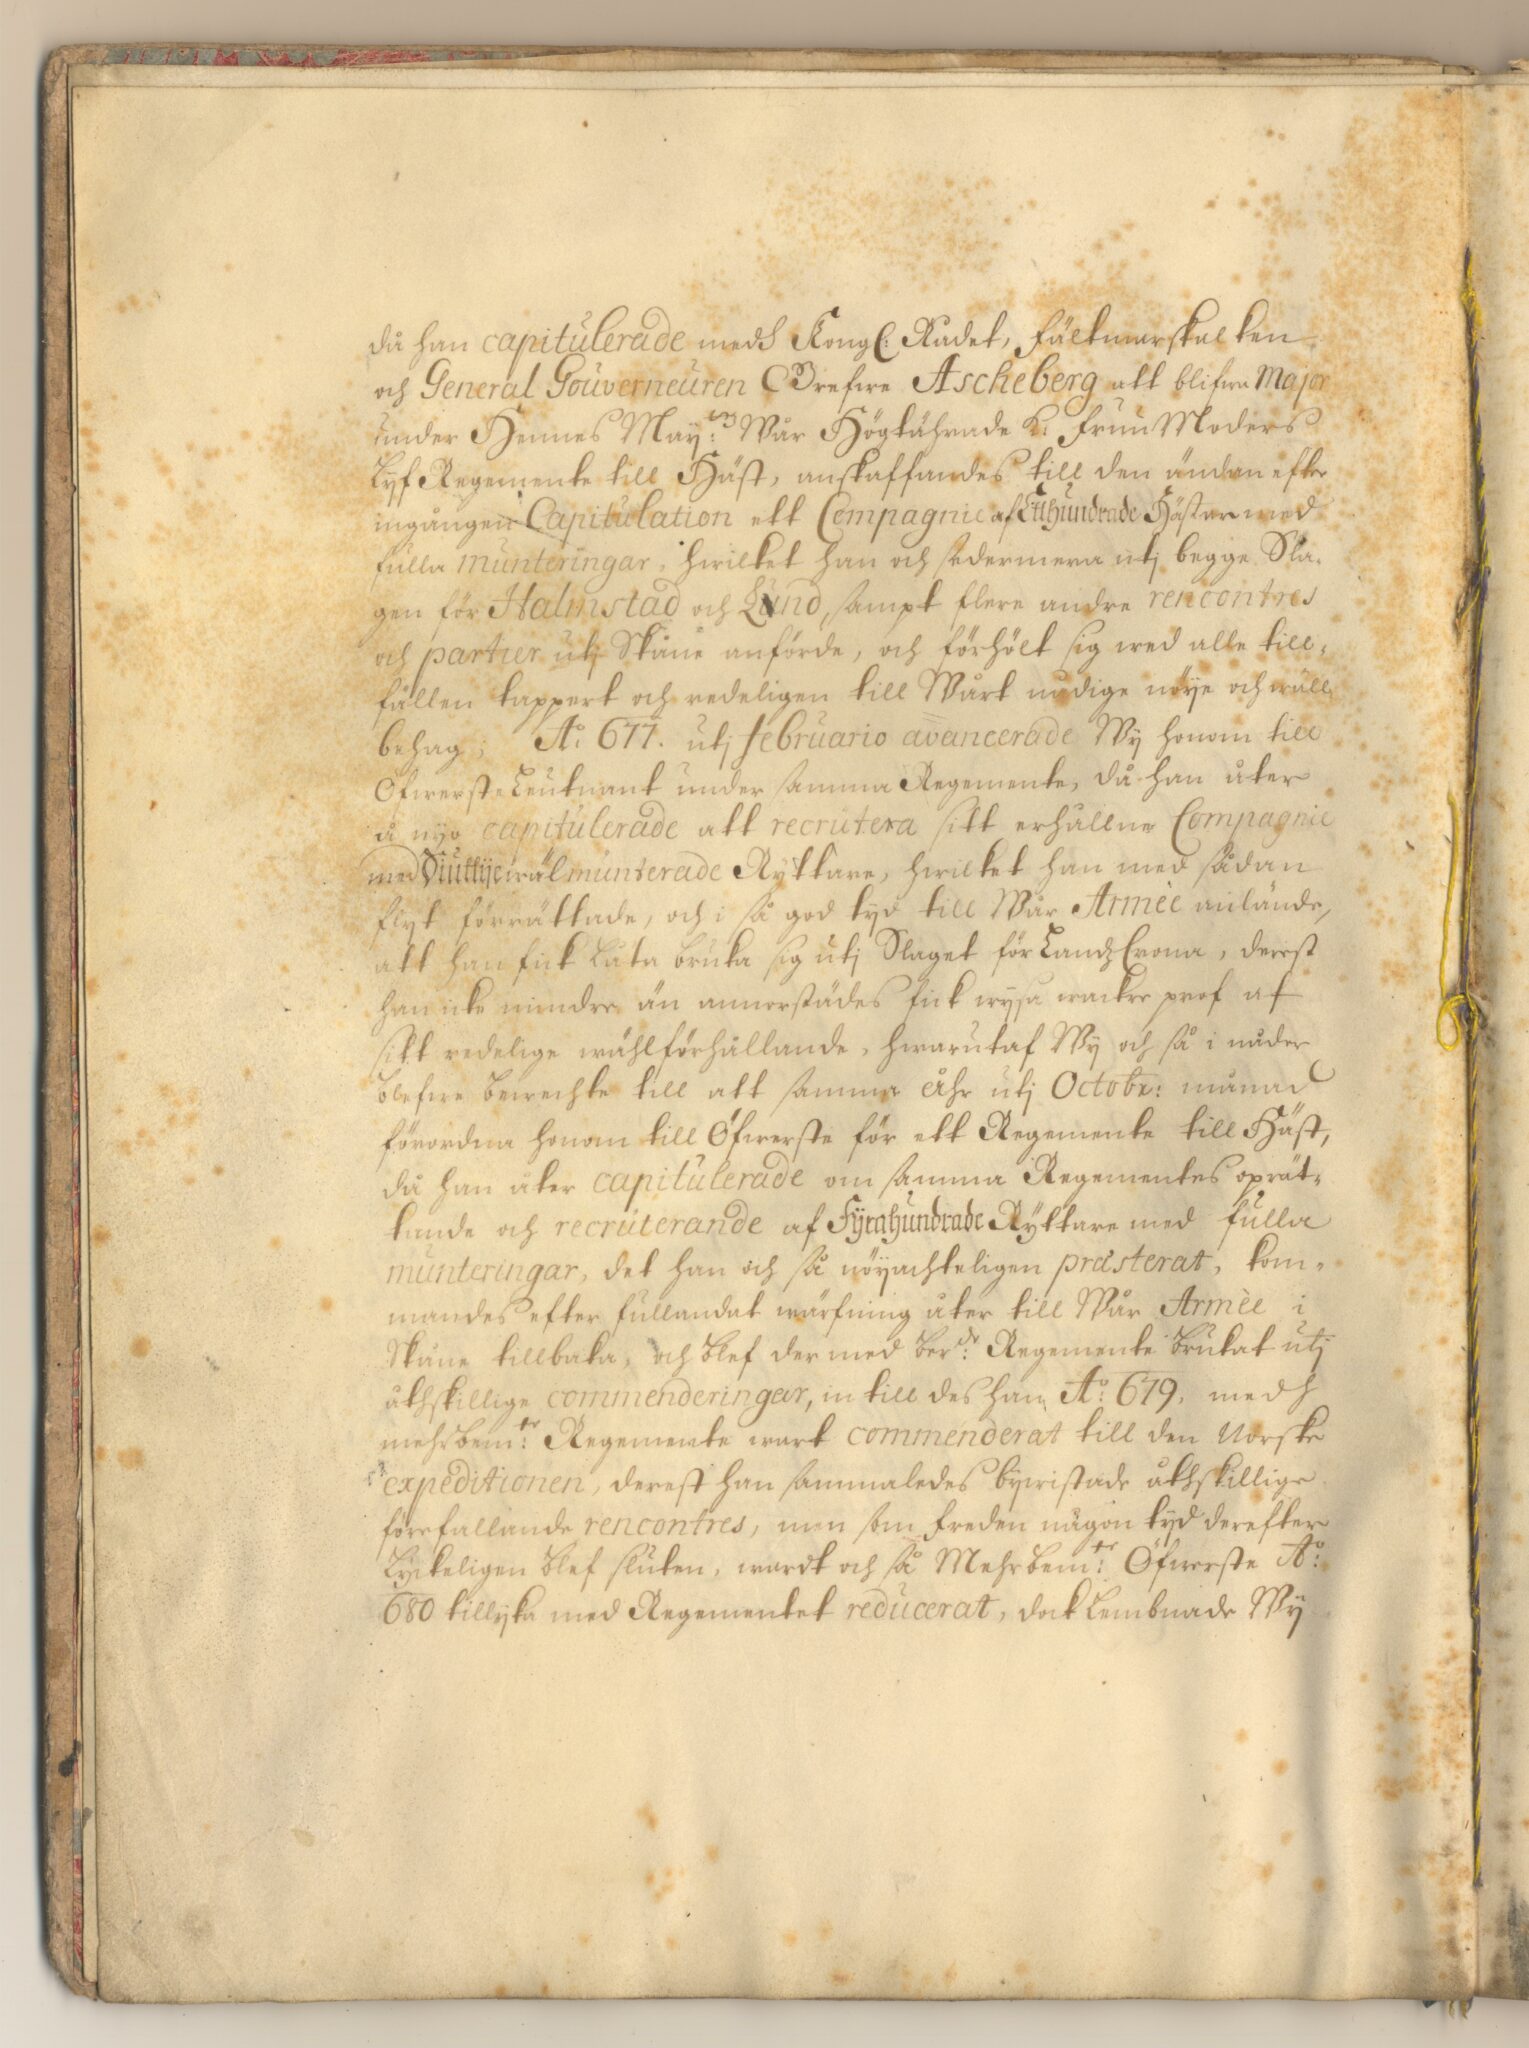 då han capitulerade medh Kongl: Rådet, Fältmarskalken
och General Gouverneuren Grefwe Ascheberg att blifwa Major
under Hennes May:tz Wår Högtährade K: Fruu Moders
Lyf Regemente till Häst, anskaffandes till den ändan efter
ingången Capitulation ett Compagnie af Etthundrade Hästar med
fulla munteringar, hwilket han och sedermera utj begge Sla-
gen för Halmstad och Lund, sampt flere andre rencontres
och partier utj Skåne anförde, och förhölt sig wed alle till-
fällen tappert och redeligen till Wårt nådige nöye och wäll
behag; A:o 677. utj februario avancerade Wy honom till
Öfwerste Leutnant under samma Regemente, då han åter
å nyo capitulerade att recrutera sitt erhållne Compagnie
med Siuttije wäl munterade Ryttare, hwilket han med sådan
flyt förrättade, och i så god tyd till Wår Armèe anlände,
att han fick låta bruka sig utj Slaget för LandzCrona, derest
han icke mindre än annorstädes fick wysa wackre prof af
sitt redelige wählförhållande, hwarutaf Wy och så i nåder
blefwe bewechte till att samma åhr utj Octobr: månad
förordna honom till Öfwerste för ett Regemente till Häst,
då han åter capitulerade om samma Regementes oprät-
tande och recruterande af Fyrahundrade Ryttare med fulla
munteringar, det han och så nöyachteligen præsterat, kom-
mandes efter fullandat wärfning åter till Wår Armèe i
Skåne tillbaka, och blef der med ber:de Regemente brukat utj
åthskillige commenderingar, in till des han A:o 679. medh
mehrbem:te Regemente wart commenderat till den Norske
expeditionen, derest han sammaledes bywistade åthskillige
förefallande rencontres, men som freden någon tyd derefter
lyckeligen blef sluten, wardt och så Mehrbem:te Öfwerste A:o
680 tillyka med Regementet reducerat, dock lembnade Wy